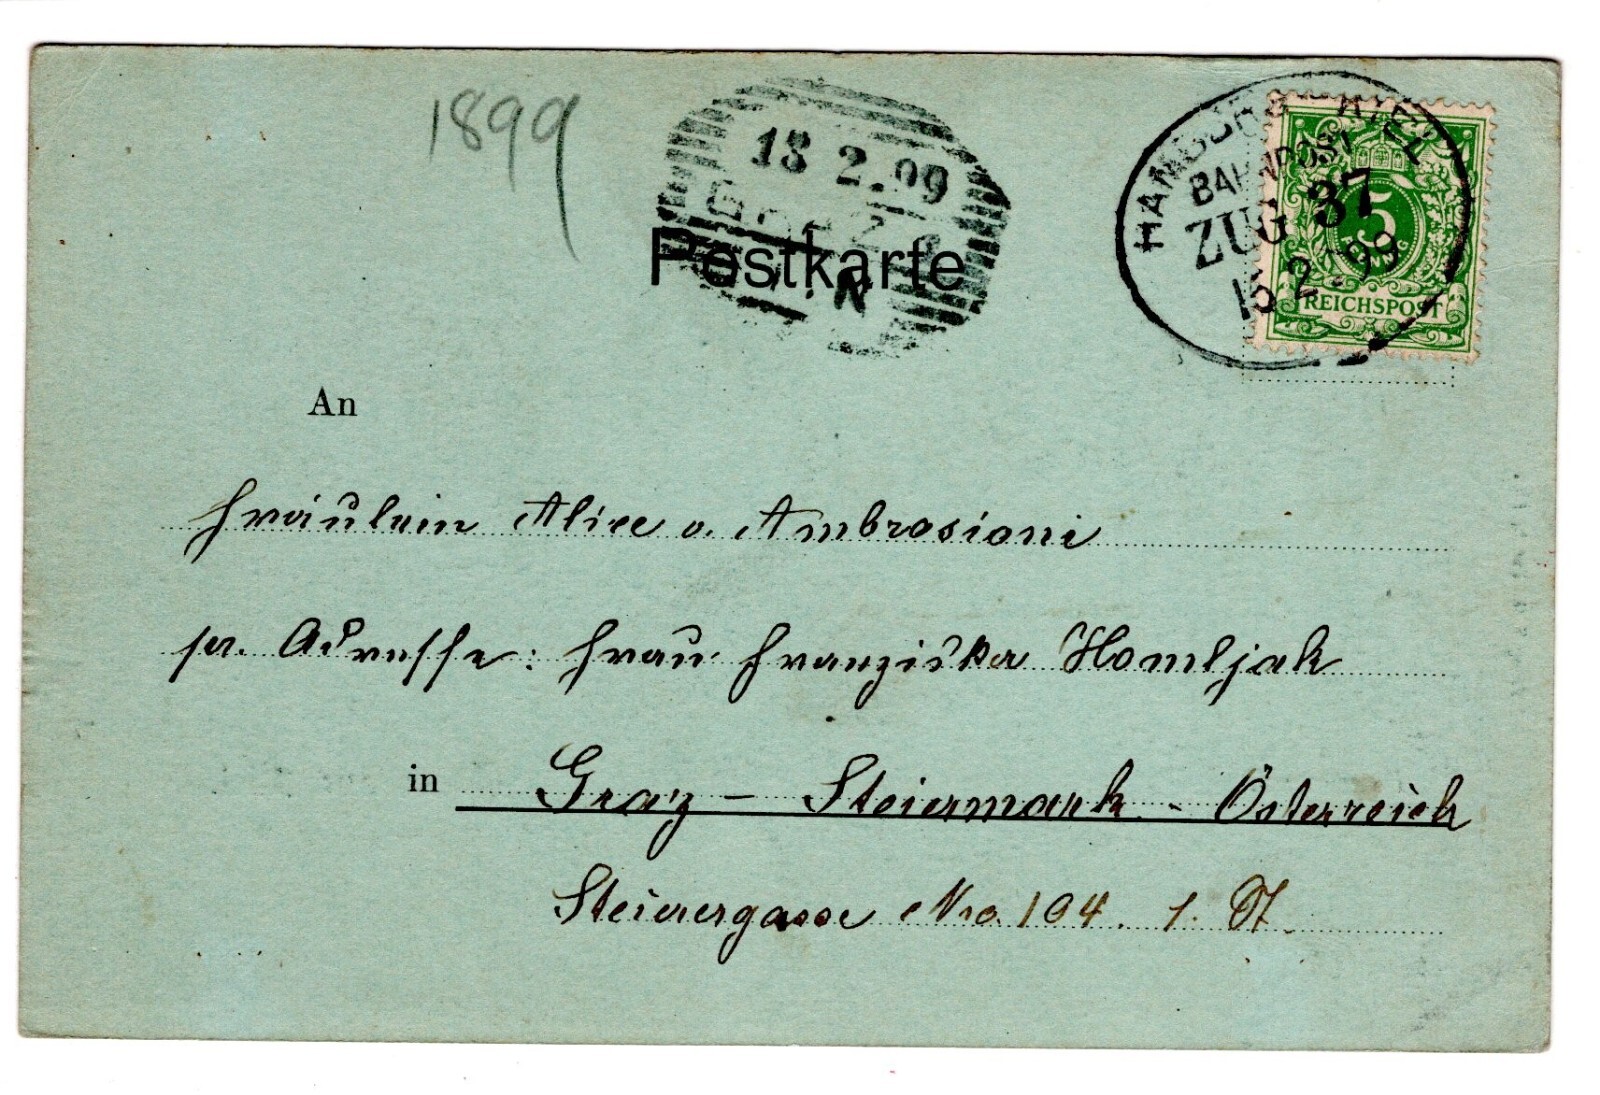 1899
18 2.99
HAMBURG KIEL
BAHNPOST
ZUG 37
15 2 99
5
REICHSPOST
Postkarte
An
Fräulein Alice v. Ambrosioni
pr. Adresse: Frau Franziska Homljak
in Graz – Steiermark - Österreich
Steierergasse Nro. 104. 1. St